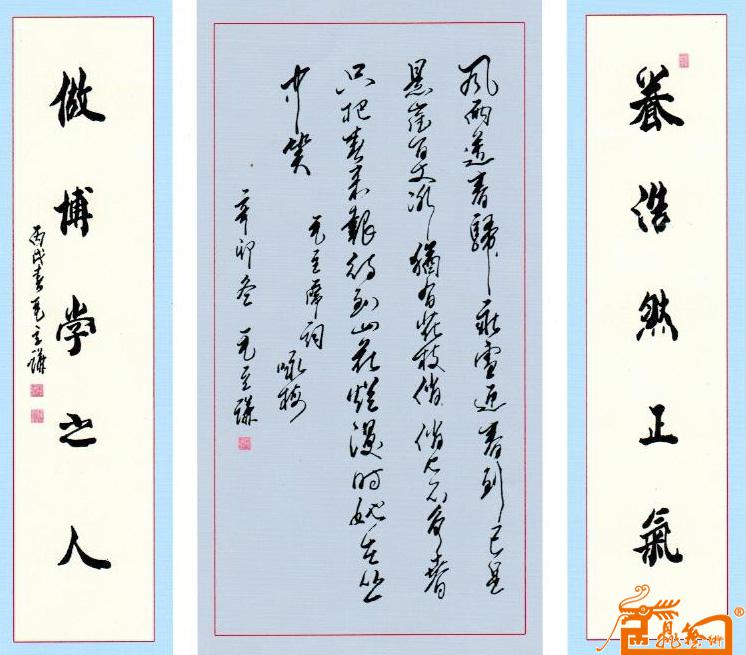 養浩然正氣
风雨送春歸飛雪迎春到已是
悬崖百丈冰猶有花枝俏俏也不争春
只把春来報待到山花爛漫時她在丛
中笑
毛主席詞 咏梅
辛卯冬 毛立謙
做博學之人
丙戌春毛立謙